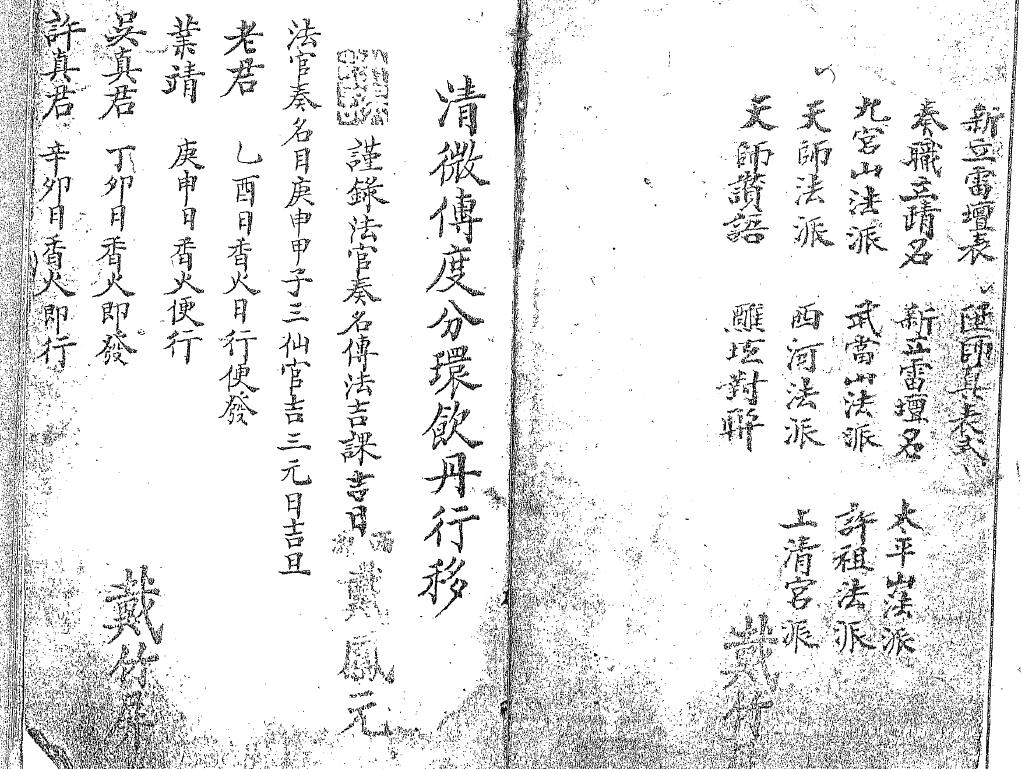 新立雷壇表
師真表式
奏職立靖名
新立雷壇名
太平山法派
九宮山法派
武當山法派
許祖法派
天師法派
西河法派
上清宮派
天師讚語
醮垣對聯
戴竹
清微傳度分環飲丹行移
謹錄法官奏名傳法吉課吉日
戴鳳元
法官奏名目庚申甲子三仙官吉三元日吉旦
老君 乚酉日香火日行便發
葉靖 庚申日香火便行
吳真君 丁卯日香火即發
戴竹屏
許真君 辛卯日香火即行